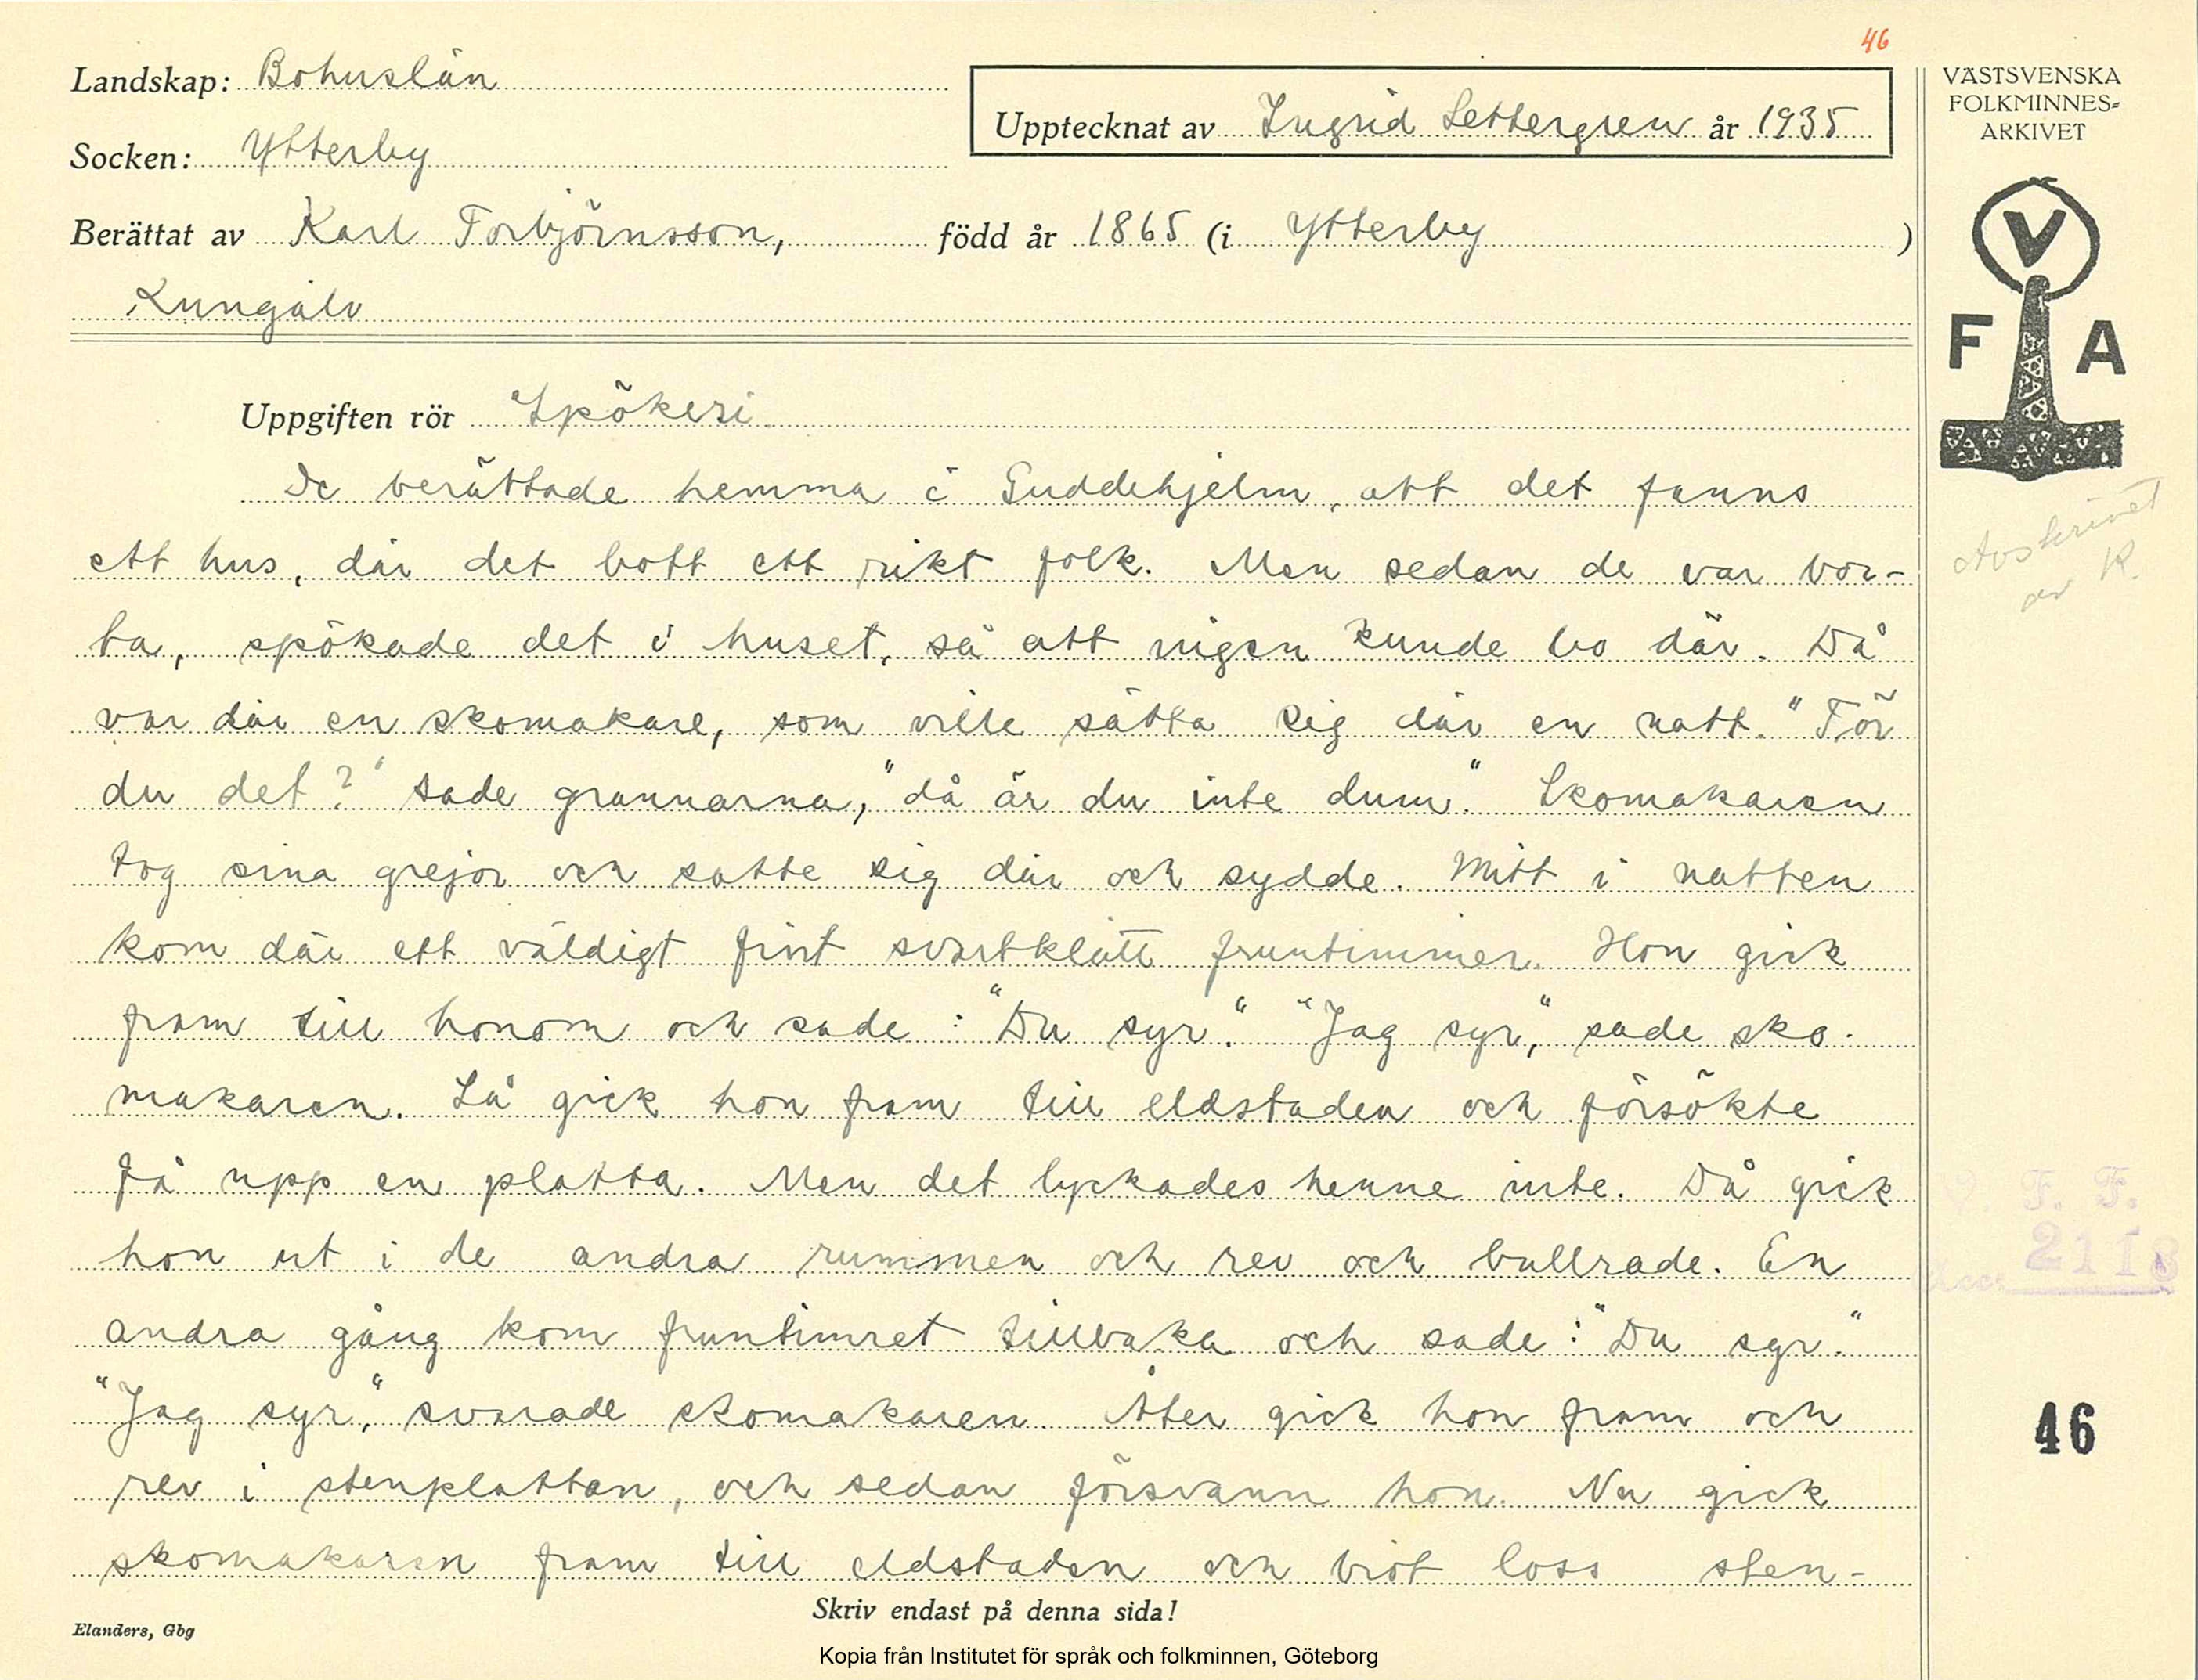 46
Landskap: Bohuslän
Socken: Ytterby
Upptecknat av Ingrid Settergren år 1935
Berättat av Karl Torbjörnsson, född år 1865 (i Ytterby )
Kungälv
VÄSTSVENSKA
FOLKMINNES-
ARKIVET
V
F A
Uppgiften rör Spökeri
De berättade hemma i Guddehjelm, att det fanns
ett hus, där det bott ett rikt folk. Men sedan de var bor-
ta, spökade det i huset, så att ingen kunde bo där. Då
var där en skomakare, som ville sätta sig där en natt. "Tör
du det?" sade grannarna, "då är du inte dum." Skomakaren
tog sina grejor och satte sig där och sydde. Mitt i natten
kom där ett väldigt fint svartklätt fruntimmer. Hon gick
fram till honom och sade: "Du syr." "Jag syr," sade sko-
makaren. Så gick hon fram till eldstaden och försökte
få upp en platta. Men det lyckades henne inte. Då gick
hon ut i de andra rummen och rev och bullrade. En
andra gång kom fruntimret tillbaka och sade: "Du syr."
"Jag syr," svarade skomakaren. Åter gick hon fram och
rev i stenplattan, och sedan försvann hon. Nu gick
skomakaren fram till eldstaden och bröt loss sten-
Avskrivet
av R.
V. F. F.
Acc. 2118
46
Skriv endast på denna sida!
Elanders, Gbg
Kopia från Institutet för språk och folkminnen, Göteborg